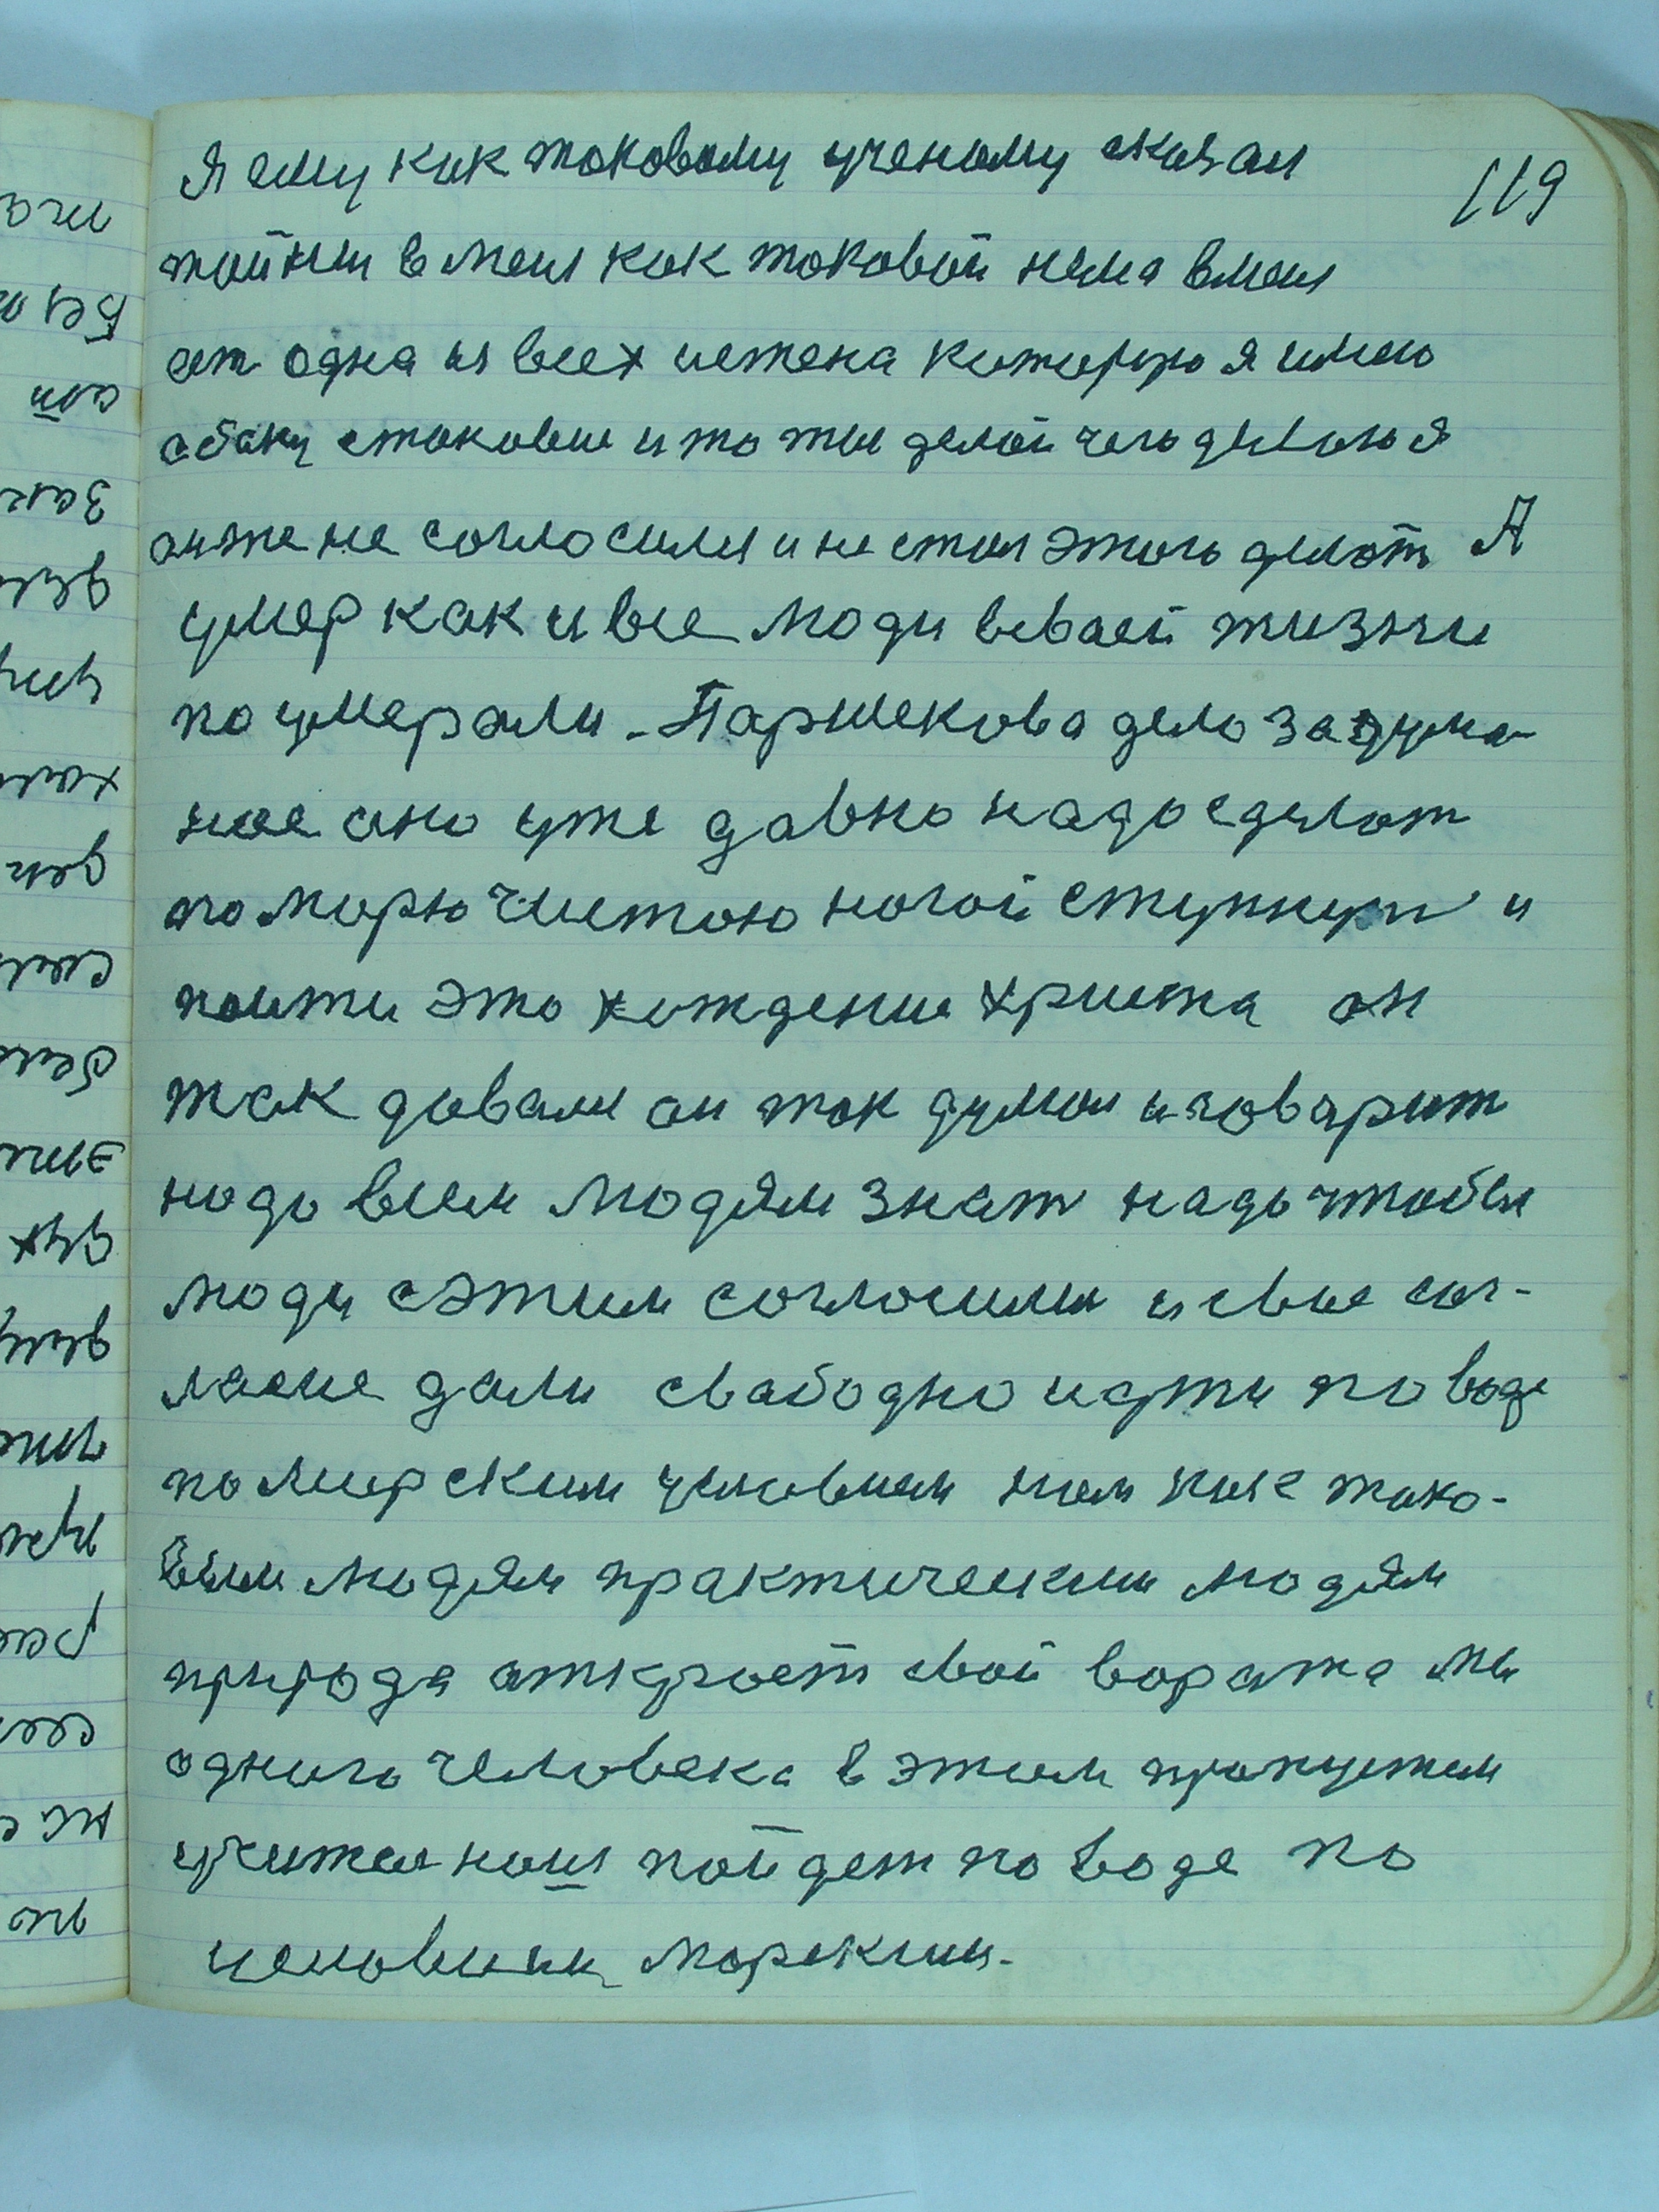 119
я ему как токовому ученому сказал
тайны в меня как токовой нема вменя
ест одна из всех истена которую я имею
с боку стоковые и то ты делой чего делою я
он же не согласился и не стал этого делот А
умер как и все люди в своей жизни
по умерали - Паршекова дело задума-
ное оно уже довно надо сделот
по морю чистою ногой ступнут и
поити это хождение христа он
так довали он так думал и говорит
надо всем людям знат надо чтобы
люди с этим согласилис и свое сог-
ласие дали свабодно идти по воде
по мирским условиям нам как тако-
вым людям практическим людям
природа аткроет свои ворота мы
одного человека в этом пропустим
учител наш пойдет по воде по
условиям морским.